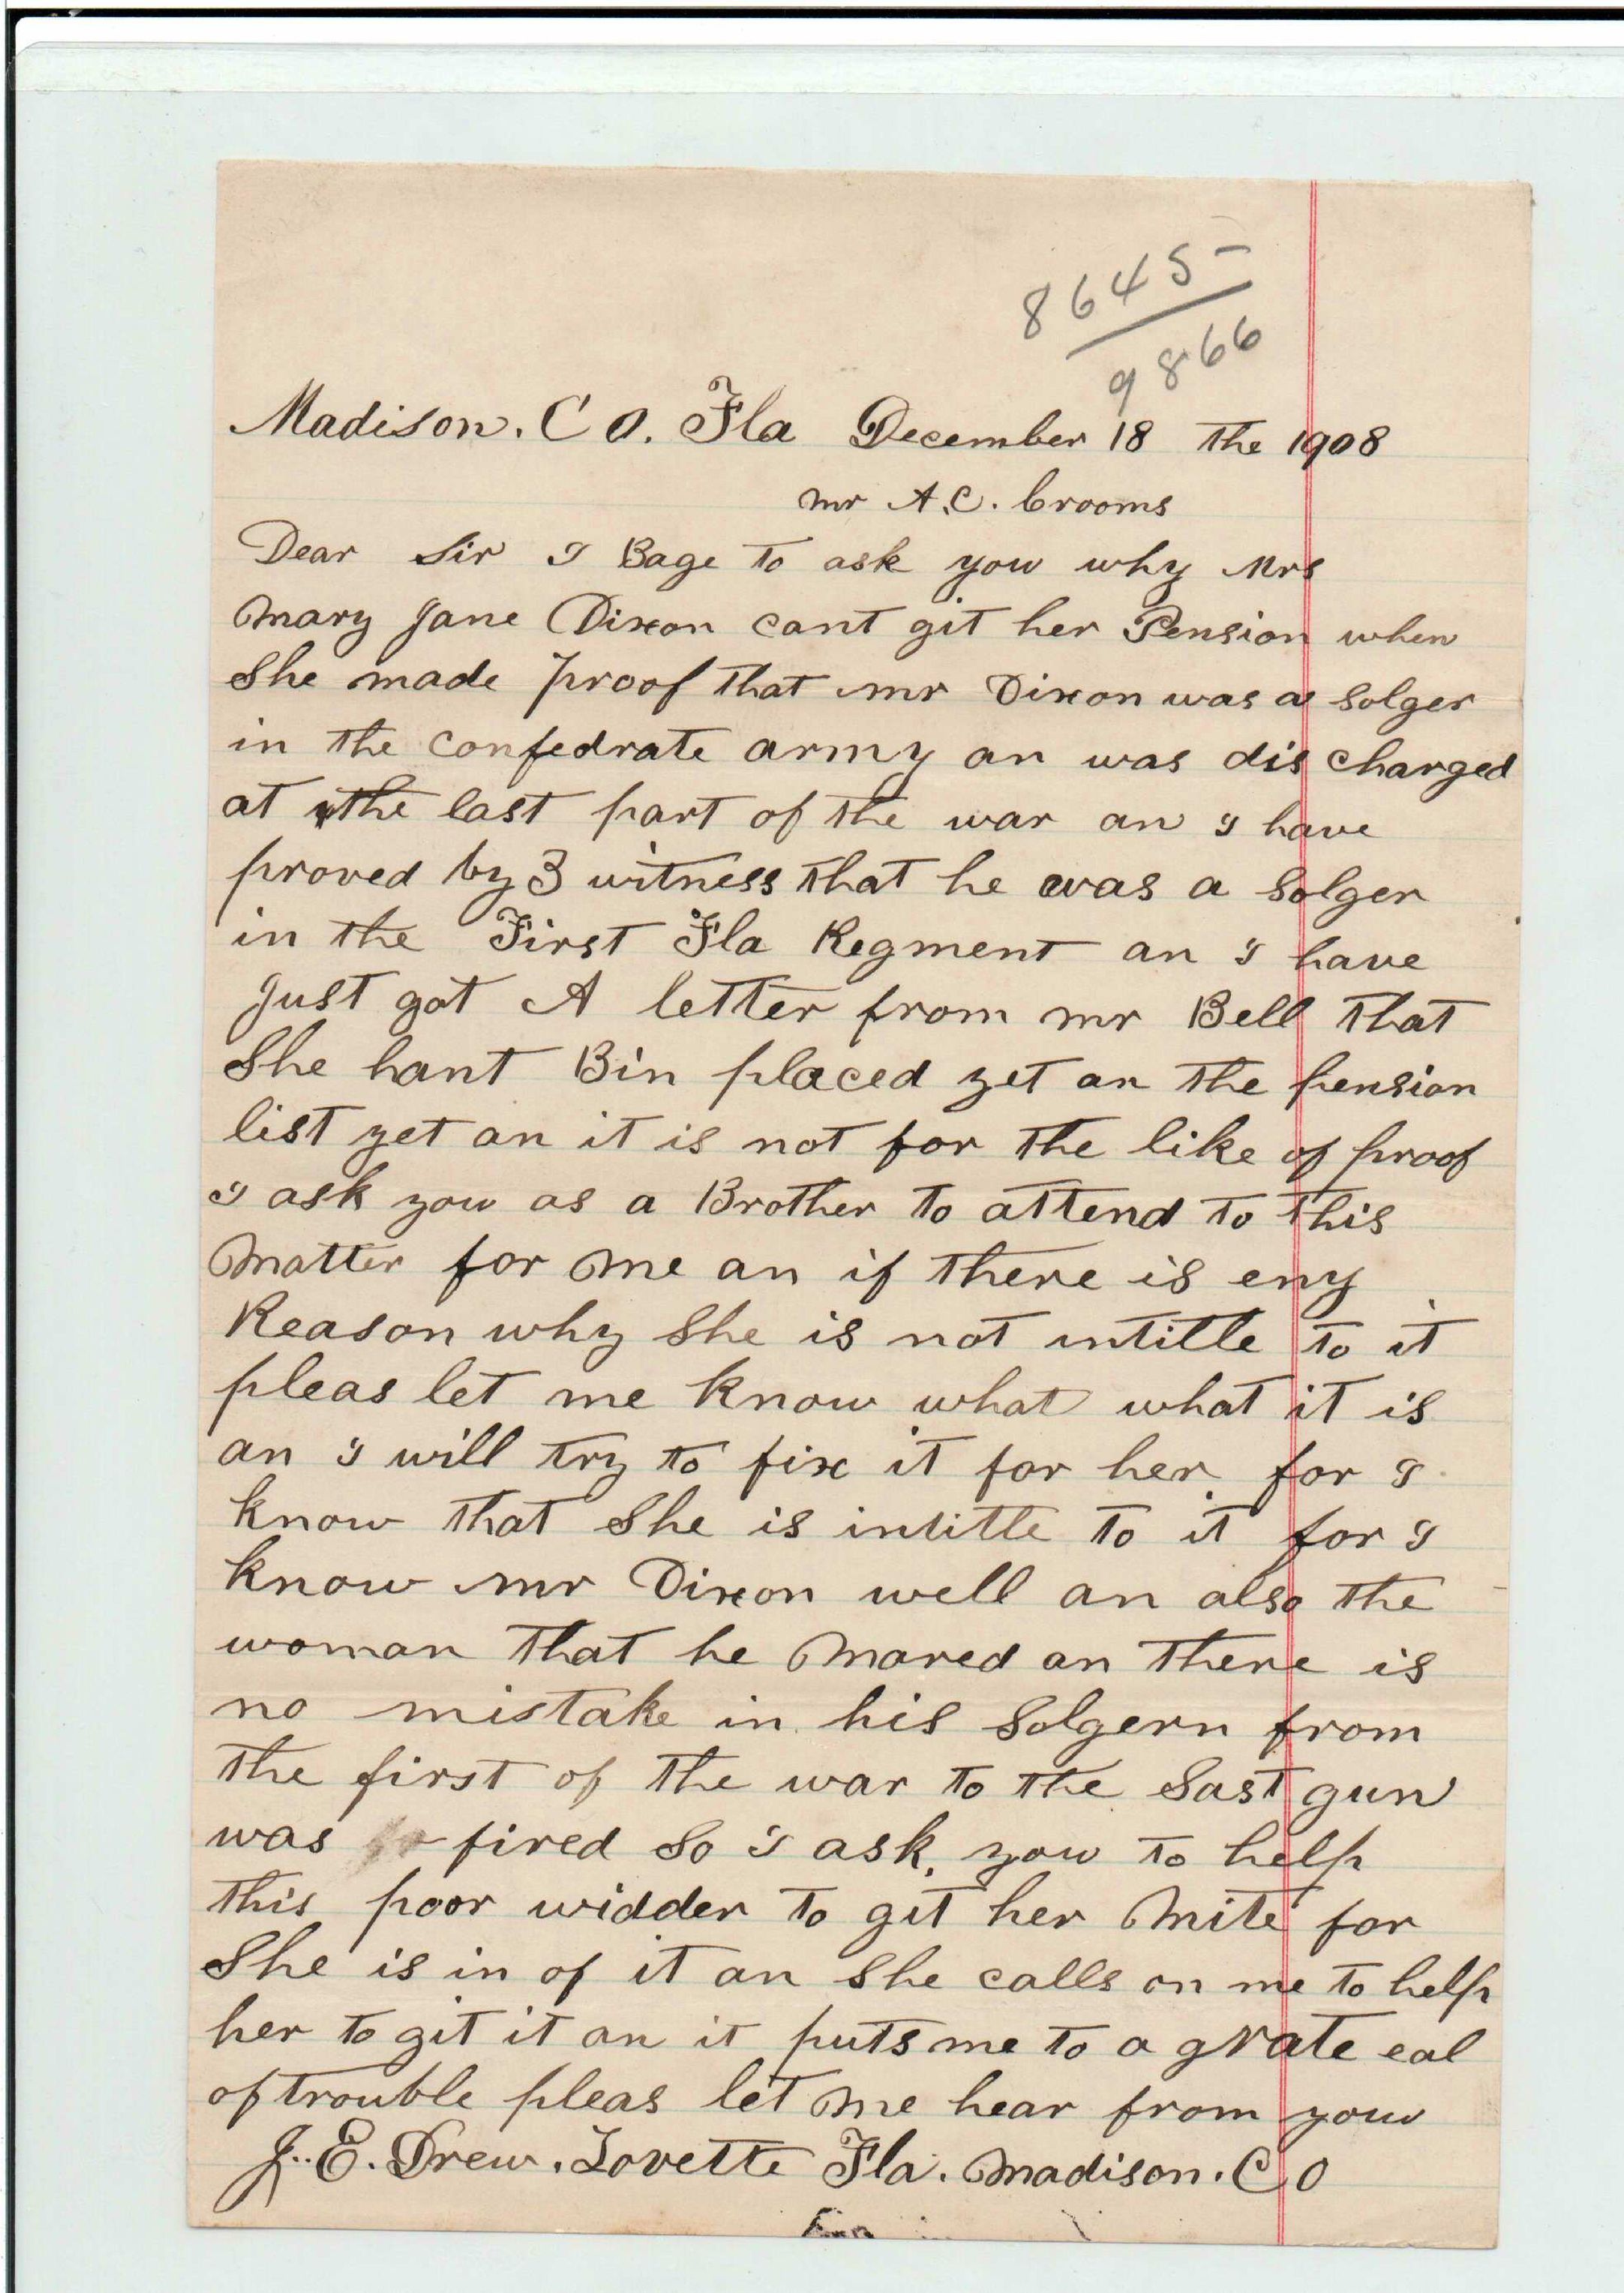 8645-
9866
Madison. Co. Fla December 18 the 1908
mr A.C. Crooms
Dear Sir I Bage to ask you why Mrs
Mary Jane Dixon cant git her Pension when
She made proof that mr Dixon was a Solger
in the confedrate army an was dis charged
at the last part of the war an I have
proved by 3 witness that he was a Solger
in the First Fla Regment an I have
Just got A letter from mr Bell that
She hant Bin placed yet an the pension
list yet an it is not for the like of proof
I ask you as a Brother to attend to this
Matter for me an if there is eny
Reason why She is not intitle to it
pleas let me know what what it is
an I will try to fix it for her for I
know that She is intitle to it for I
know mr Dixon well an also the
woman that he Mared an there is
no mistake in his Solgern from
the first of the war to the Sast gun
was fired So I ask you to help
this poor widder to git her Mite for
She is in of it an She calls on me to help
her to git it an it puts me to a grate eal
of trouble pleas let me hear from you
J. E. Drew. Lovette Fla. Madison. Co